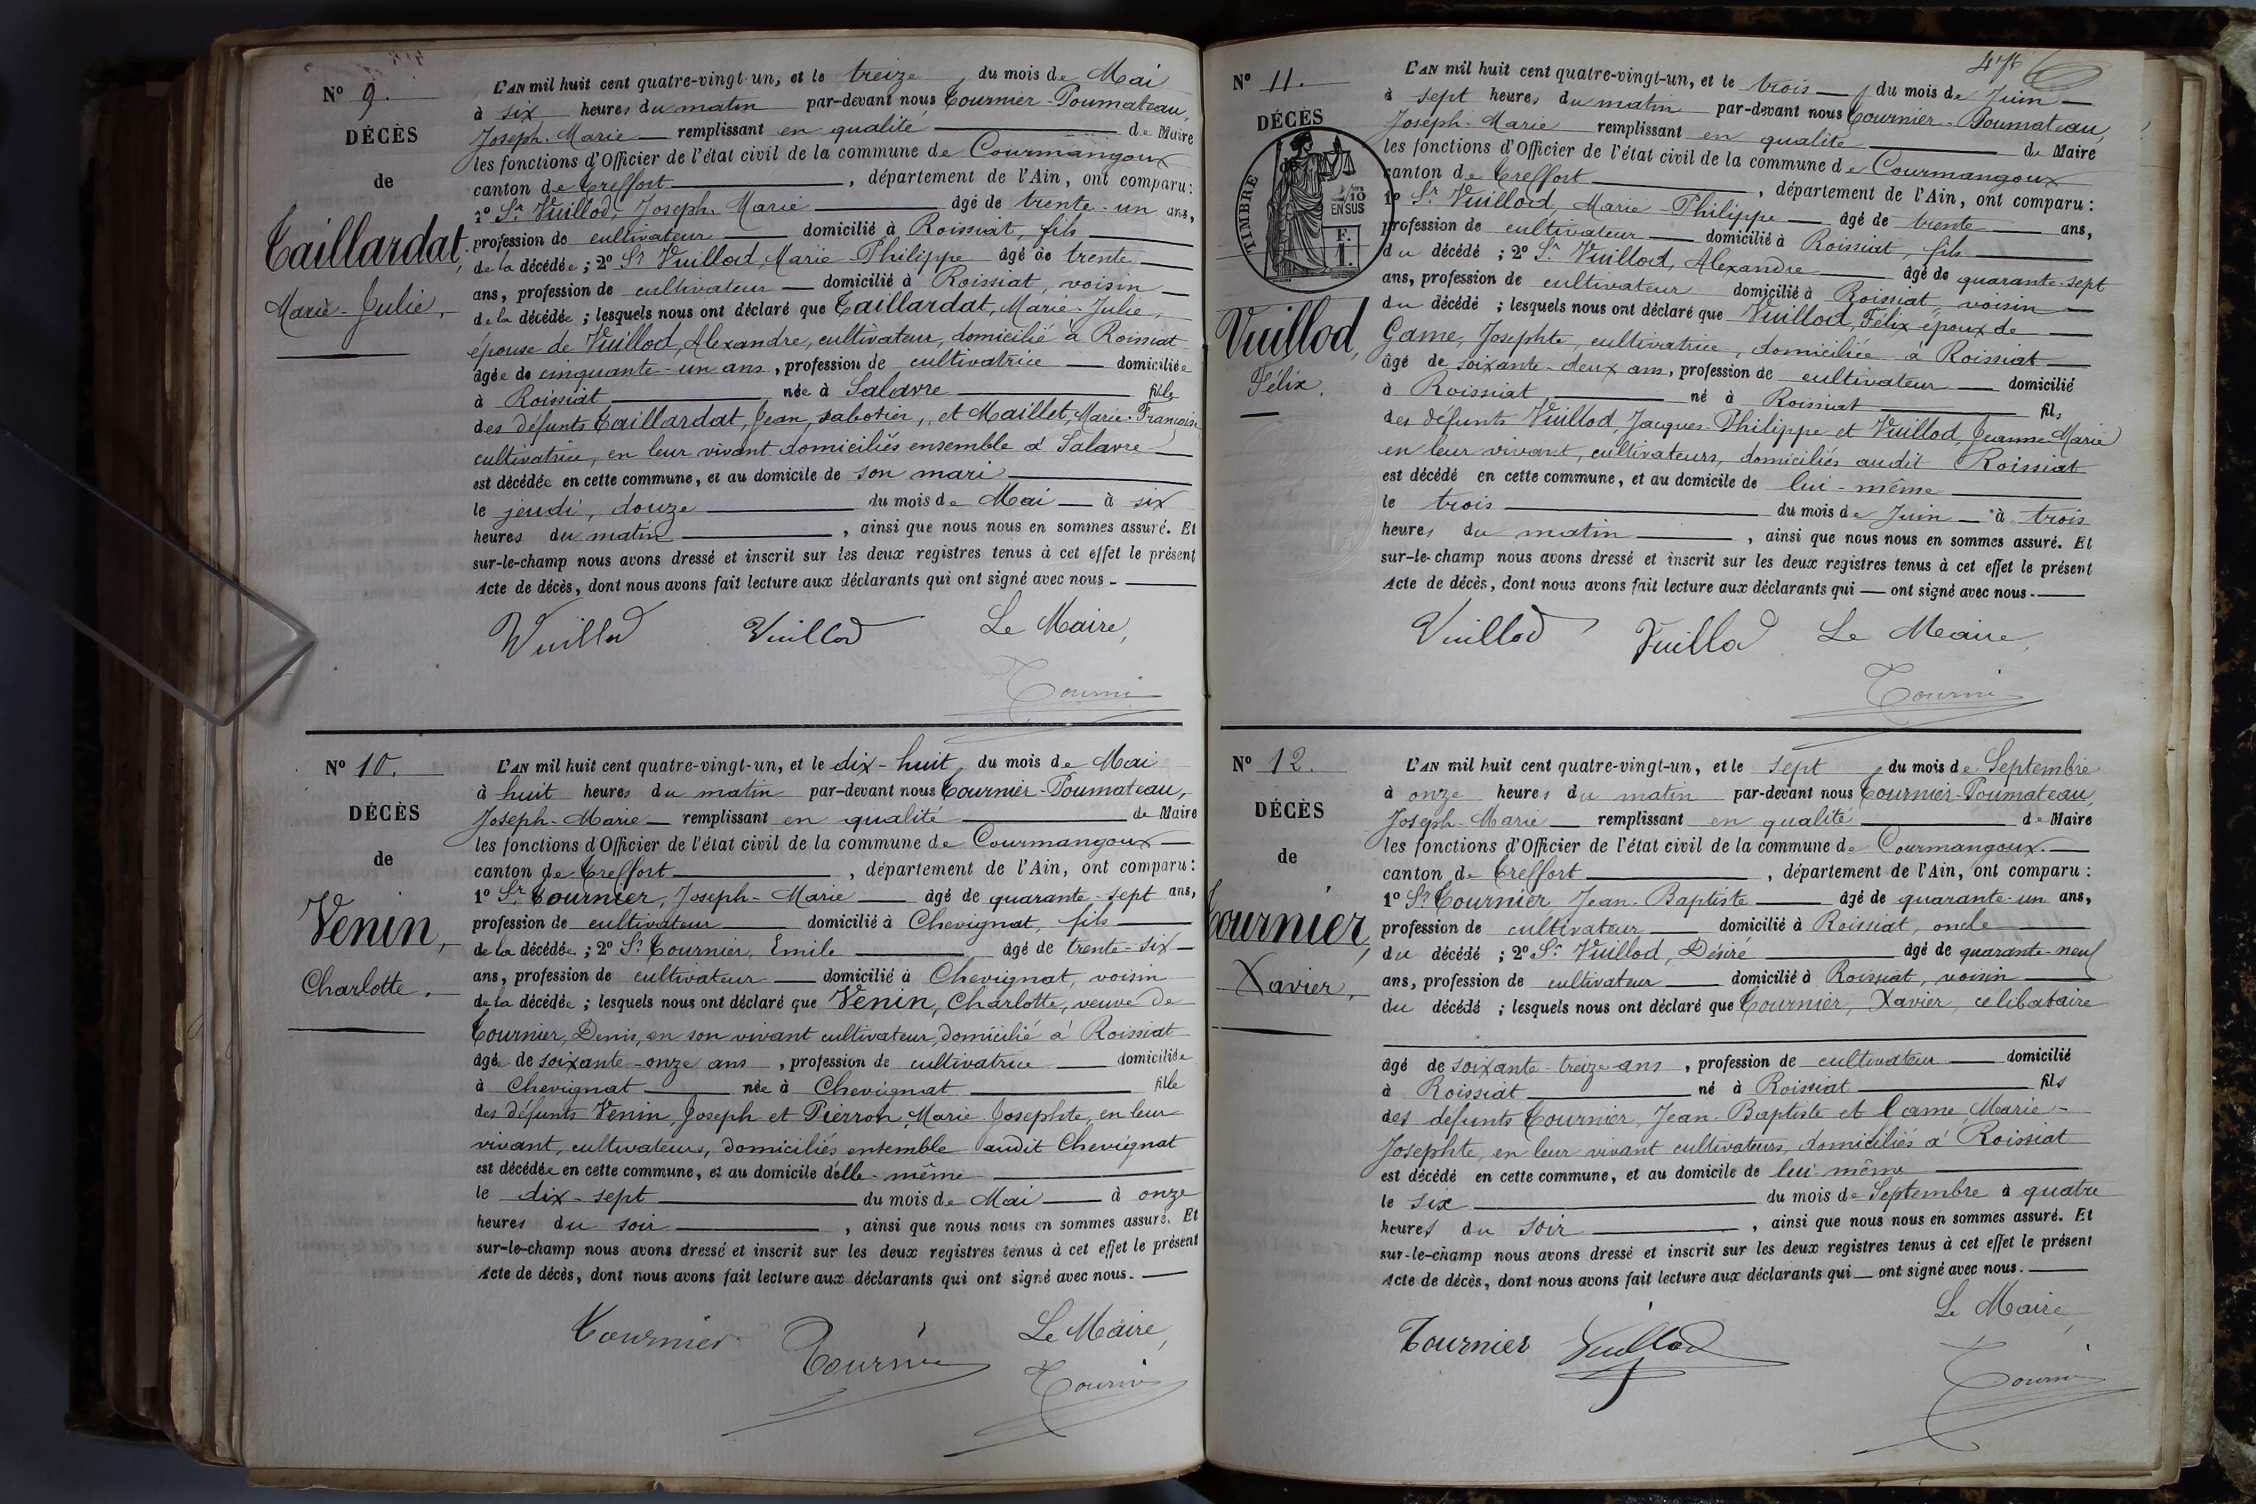 N° 9.
DÉCÈS
de
Taillardat,
Marie-Julie,
L'AN mil huit cent quatre-vingt-un, et le treize, du mois de Mai
à six heures du matin par-devant nous Tournier-Poumateau,
Joseph-Marie remplissant en qualité de Maire
les fonctions d'Officier de l'état civil de la commune de Courmangoux
canton de Treffort, département de l'Ain, ont comparu:
1° Sr. Vuillod, Joseph Marie âgé de trente-un ans,
profession de cultivateur domicilié à Roissiat, fils
de la décédée; 2° Sr Vuillod, Marie-Philippe âgé de trente
ans, profession de cultivateur domicilié à Roissiat, voisin
de la décédée; lesquels nous ont déclaré que Taillardat, Marie-Julie,
épouse de Vuillod, Alexandre, cultivateur, domicilié à Roissiat
âgée de cinquante-un ans, profession de cultivatrice domiciliée
à Roissiat née à Salavre fille
des défunts Taillardat, Jean, sabotier, et Maillet, Marie-Françoise
cultivatrice, en leur vivant domiciliés ensemble à Salavre
est décédée en cette commune, et au domicile de son mari
le jeudi, douze du mois de Mai à six
heures du matin, ainsi que nous nous en sommes assuré. Et
sur-le-champ nous avons dressé et inscrit sur les deux registres tenus à cet effet le présent
Acte de décès, dont nous avons fait lecture aux déclarants qui ont signé avec nous.
Vuillod Vuillod Le Maire,
Tournier
N° 10.
DÉCÈS
de
Venin,
Charlotte.
L'AN mil huit cent quatre-vingt-un, et le dix-huit, du mois de Mai
à huit heures du matin par-devant nous Tournier-Poumateau,
Joseph-Marie remplissant en qualité de Maire
les fonctions d'Officier de l'état civil de la commune de Courmangoux
canton de Treffort, département de l'Ain, ont comparu:
1° Sr. Tournier, Joseph-Marie âgé de quarante-sept ans,
profession de cultivateur domicilié à Chevignat, fils
de la décédée; 2° Sr. Tournier, Emile âgé de trente-six
ans, profession de cultivateur domicilié à Chevignat, voisin
de la décédée; lesquels nous ont déclaré que Venin, Charlotte, veuve de
Tournier, Denis, en son vivant cultivateur, domicilié à Roissiat
âgé de soixante-onze ans, profession de cultivatrice domiciliée
à Chevignat née à Chevignat fille
des défunts Venin, Joseph et Pierron, Marie-Josephte, en leur
vivant, cultivateurs, domiciliés ensemble audit Chevignat
est décédée en cette commune, et au domicile d'elle-même
le dix-sept du mois de Mai à onze
heures du soir, ainsi que nous nous en sommes assuré. Et
sur-le-champ nous avons dressé et inscrit sur les deux registres tenus à cet effet le présent
Acte de décès, dont nous avons fait lecture aux déclarants qui ont signé avec nous.
Tournier Tournier Le Maire,
Tournier
N° 11.
DÉCÈS
de
TIMBRE
2/10
EN SUS
F.
1.
Vuillod,
Félix.
L'AN mil huit cent quatre-vingt-un, et le trois, du mois de Juin
à sept heures du matin par-devant nous Tournier-Poumateau,
Joseph-Marie remplissant en qualité de Maire
les fonctions d'Officier de l'état civil de la commune de Courmangoux
canton de Treffort, département de l'Ain, ont comparu:
1° Sr. Vuillod, Marie-Philippe âgé de trente ans,
profession de cultivateur domicilié à Roissiat, fils
du décédé; 2° Sr. Vuillod, Alexandre âgé de quarante-sept
ans, profession de cultivateur domicilié à Roissiat, voisin
du décédé; lesquels nous ont déclaré que Vuillod, Félix époux de
Game, Josephte, cultivatrice, domiciliée à Roissiat
âgé de soixante-deux ans, profession de cultivateur domicilié
à Roissiat né à Roissiat fils
des défunts Vuillod, Jacques-Philippe et Vuillod, Jeanne Marie
en leur vivant, cultivateurs, domiciliés audit Roissiat
est décédé en cette commune, et au domicile de lui-même
le trois du mois de Juin à trois
heures du matin, ainsi que nous nous en sommes assuré. Et
sur-le-champ nous avons dressé et inscrit sur les deux registres tenus à cet effet le présent
Acte de décès, dont nous avons fait lecture aux déclarants qui ont signé avec nous.
Vuillod Vuillod Le Maire,
Tournier
N° 12.
DÉCÈS
de
Tournier,
Xavier,
L'AN mil huit cent quatre-vingt-un, et le sept, du mois de Septembre
à onze heures du matin par-devant nous Tournier-Poumateau,
Joseph-Marie remplissant en qualité de Maire
les fonctions d'Officier de l'état civil de la commune de Courmangoux.
canton de Treffort, département de l'Ain, ont comparu:
1° Sr Tournier Jean-Baptiste âgé de quarante-un ans,
profession de cultivateur domicilié à Roissiat, oncle
du décédé; 2° Sr. Vuillod, Désiré âgé de quarante-neuf
ans, profession de cultivateur domicilié à Roissiat, voisin
du décédé; lesquels nous ont déclaré que Tournier, Xavier, celibataire
âgé de soixante-treize ans, profession de cultivateur domicilié
à Roissiat né à Roissiat fils
des défunts Tournier, Jean-Baptiste et Came Marie-
Josephte, en leur vivant cultivateurs, domiciliés à Roissiat
est décédé en cette commune, et au domicile de lui-même
le six du mois de Septembre à quatre
heures du soir, ainsi que nous nous en sommes assuré. Et
sur-le-champ nous avons dressé et inscrit sur les deux registres tenus à cet effet le présent
Acte de décès, dont nous avons fait lecture aux déclarants qui ont signé avec nous.
Le Maire,
Tournier Vuillod
Tournier